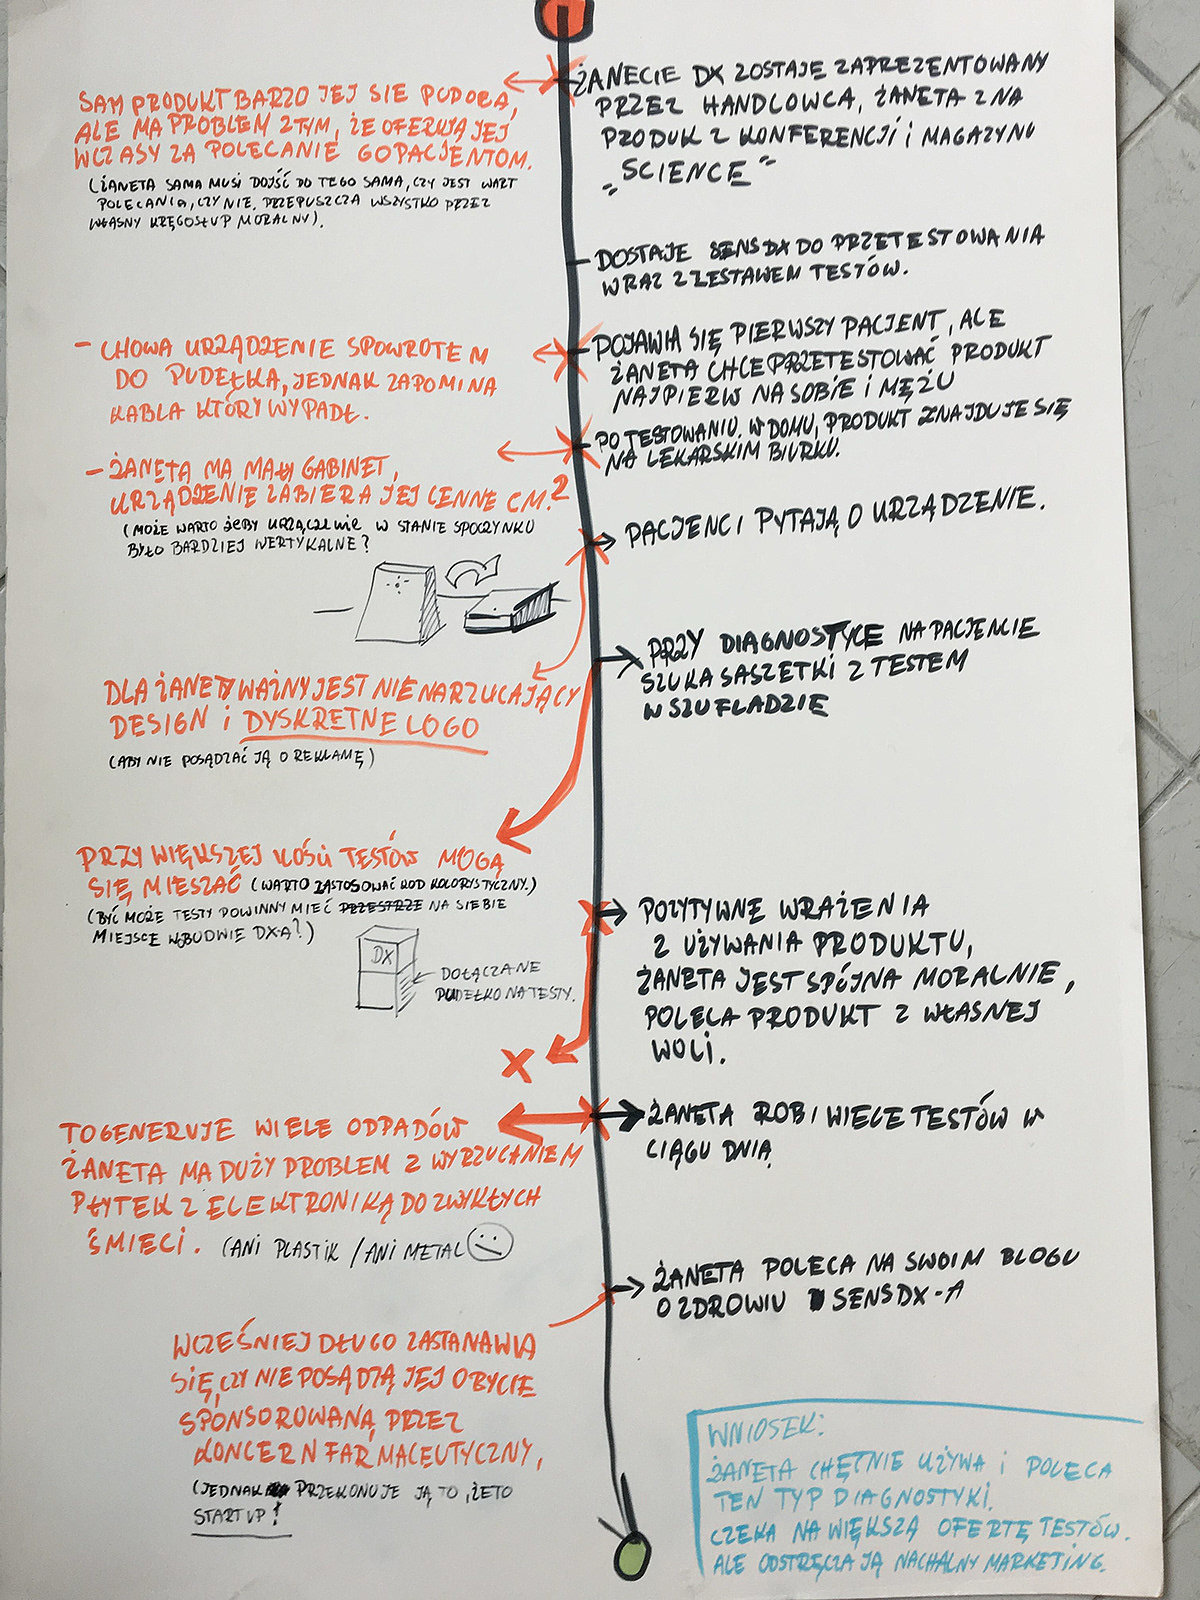 ŻANECIE DX ZOSTAJĘ ZAPREZENTOWANY
PRZEZ HANDLOWCA, ŻANETA ZNA
PRODUK Z KONFERENCJI i MAGAZYNU
„SCIENCE”
SAM PRODUKT BARZO JEJ SIE PODOBA,
ALE MA PROBLEM Z TYM, ŻE OFERUJĄ JEJ
WCZASY ZA POLECANIE GO PACJENTOM.
(ŻANETA SAMA MUSI DOJŚĆ DO TEGO SAMA, CZY JEST WART
POLECANIA, CZY NIE. PRZEPUSZCZA WSZYSTKO PRZEZ
WŁASNY KRĘGOSŁUP MORALNY).
DOSTAJE SENSDX DO PRZETESTOWANIA
WRAZ Z ZESTAWEM TESTÓW.
POJAWIA SIĘ PIERWSZY PACJENT, ALE
ŻANETA CHCE PRZETESTOWAĆ PRODUKT
NAJPIERW NA SOBIE i MĘŻU
- CHOWA URZĄDZENIE SPOWROTEM
DO PUDEŁKA, JEDNAK ZAPOMINA
KABLA KTÓRY WYPADŁ.
PO TESTOWANIU. W DOMU, PRODUKT ZNAJDUJE SIĘ
NA LEKARSKIM BIURKU.
- ŻANETA MA MAŁY GABINET,
URZĄDZENIE ZABIERA JEJ CENNE CM.²
(MOŻE WARTO ŻEBY URZĄDZENIE W STANIE SPOCZYNKU
BYŁO BARDZIEJ WERTYKALNE?
PACJENCI PYTAJĄ O URZĄDZENIE.
DLA ŻANETY WAŻNY JEST NIENARZUCAJĄCY
DESIGN i DYSKRETNE LOGO
(ABY NIE POSĄDZAĆ JĄ O REKLAMĘ)
PRZY DIAGNOSTYCE NA PACJENCIE
SZUKA SASZETKI Z TESTEM
W SZUFLADZIE
PRZY WIĘKSZEJ ILOŚCI TESTÓW MOGĄ
SIĘ MIESZAĆ (WARTO ZASTOSOWAĆ KOD KOLORYSTYCZNY.)
(BYĆ MOŻE TESTY POWINNY MIEĆ PRZESTRZE NA SIEBIE
MIEJSCE W BUDWIE DX-A?)
DX
DOŁĄCZANE
PUDEŁKO NA TESTY.
POZYTYWNE WRAŻENIA
Z UŻYWANIA PRODUKTU,
ŻANETA JEST SPÓJNA MORALNIE,
POLECA PRODUKT Z WŁASNEJ
WOLI.
X
ŻANETA ROBI WIELE TESTÓW W
CIĄGU DNIA
TO GENERUJE WIELE ODPADÓW
ŻANETA MA DUŻY PROBLEM Z WYRZUCANIEM
PŁYTEK Z ELEKTRONIKĄ DO ZWYKŁYCH
ŚMIECI. (ANI PLASTIK / ANI METAL
ŻANETA POLECA NA SWOIM BLOGU
O ZDROWIU SENSDX-A
WCZEŚNIEJ DŁUGO ZASTANAWIA
SIĘ, CZY NIE POSĄDZĄ JEJ O BYCIE
SPONSOROWANĄ PRZEZ
KONCERN FARMACEUTYCZNY,
(JEDNAK PRZEKONUJE JĄ TO, ŻE TO
STARTUP!
WNIOSEK:
ŻANETA CHĘTNIE UŻYWA i POLECA
TEN TYP DIAGNOSTYKI.
CZEKA NA WIĘKSZĄ OFERTĘ TESTÓW.
ALE ODSTRĘCZA JĄ NACHALNY MARKETING.